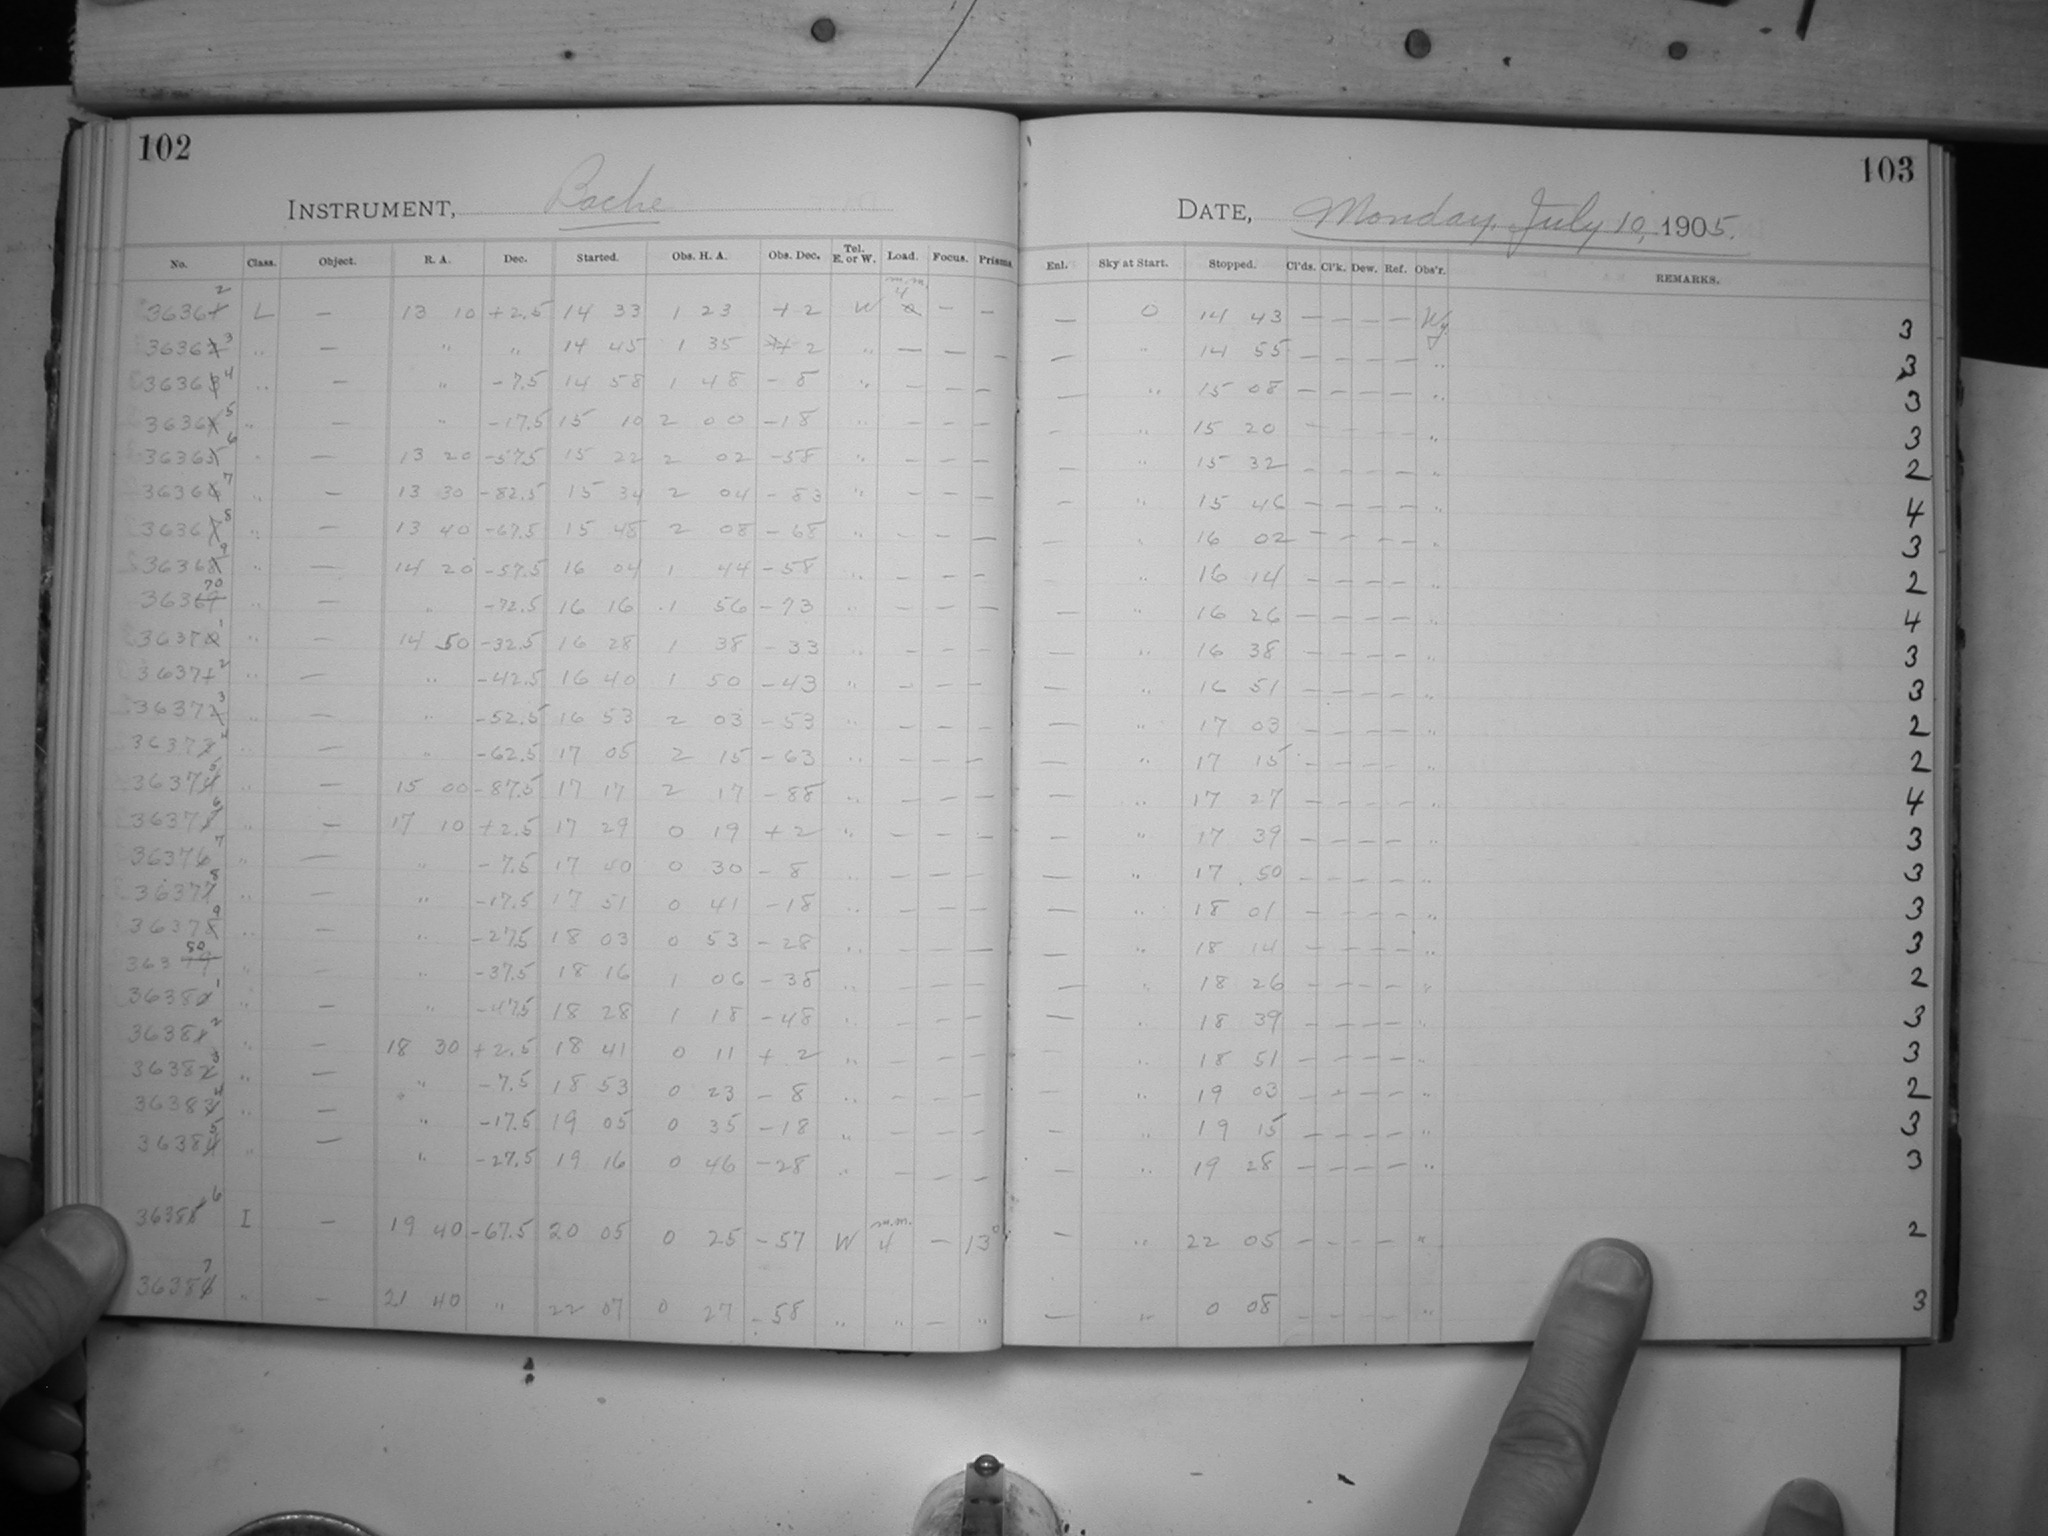 102
INSTRUMENT, Bache
No. Class. Object. R. A. Dec. Started. Obs. H. A. Obs. Dec. Tel. E. or W. Load. Focus. Prisms
36362 L — 13 10 +2.5 14 33 1 23 +2 W m.m. 4 — —
36363 " — " " 14 45 1 35 +2 " — — —
36364 " — " -7.5 14 58 1 48 -8 " — — —
36365 " — " -17.5 15 10 2 00 -18 " — — —
36366 " — 13 20 -57.5 15 22 2 02 -58 " — — —
36367 " — 13 30 -82.5 15 34 2 04 -83 " — — —
36368 " — 13 40 -67.5 15 48 2 08 -68 " — — —
36369 " — 14 20 -57.5 16 04 1 44 -58 " — — —
36370 " — " -72.5 16 16 1 56 -73 " — — —
36371 " — 14 50 -32.5 16 28 1 38 -33 " — — —
36372 " — " -42.5 16 40 1 50 -43 " — — —
36373 " — " -52.5 16 53 2 03 -53 " — — —
36374 " — " -62.5 17 05 2 15 -63 " — — —
36375 " — 15 00 -87.5 17 17 2 17 -88 " — — —
36376 " — 17 10 +2.5 17 29 0 19 +2 " — — —
36377 " — " -7.5 17 40 0 30 -8 " — — —
36378 " — " -17.5 17 51 0 41 -18 " — — —
36379 " — " -27.5 18 03 0 53 -28 " — — —
36380 " — " -37.5 18 16 1 06 -38 " — — —
36381 " — " -47.5 18 28 1 18 -48 " — — —
36382 " — 18 30 +2.5 18 41 0 11 +2 " — — —
36383 " — " -7.5 18 53 0 23 -8 " — — —
36384 " — " -17.5 19 05 0 35 -18 " — — —
36385 " — " -27.5 19 16 0 46 -28 " — — —
36386 I — 19 40 -67.5 20 05 0 25 -57 W m.m. 4 — 13°
36387 " — 21 40 " 22 07 0 27 -58 " " — "
103
DATE, Monday, July 10, 1905.
Enl. Sky at Start. Stopped. Cl'ds. Cl'k. Dew. Ref. Obs'r. REMARKS.
— 0 14 43 — — — — Wy. 3
— " 14 55 — — — — " 3
— " 15 08 — — — — " 3
— 15 20 — — — — " 3
— " 15 32 — — — — " 2
— " 15 46 — — — — " 4
— " 16 02 — — — — " 3
— " 16 14 — — — — " 2
— " 16 26 — — — — " 4
— " 16 38 — — — — " 3
— " 16 51 — — — — " 3
— " 17 03 — — — — " 2
— " 17 15 — — — — " 2
— " 17 27 — — — — " 4
— " 17 39 — — — — " 3
— " 17 50 — — — — " 3
— " 18 01 — — — — " 3
— " 18 14 — — — — " 3
— " 18 26 — — — — " 2
— " 18 39 — — — — " 3
— " 18 51 — — — — " 3
— " 19 03 — — — — " 2
— " 19 15 — — — — " 3
— " 19 28 — — — — " 3
— " 22 05 — — — — " 2
— " 0 08 — — — — " 3